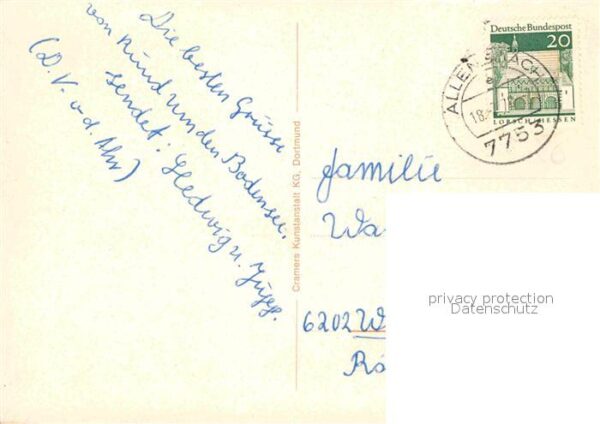 Die besten Grüsse
von Rund um den Bodensee.
sendet: Hedwig u. Jupp.
(D. V. v. d. Ahr)
Cramers Kunstanstalt KG, Dortmund
Deutsche Bundespost
20
LORSCH/HESSEN
7753
Familie
Wa
6202 W
privacy protection
Datenschutz